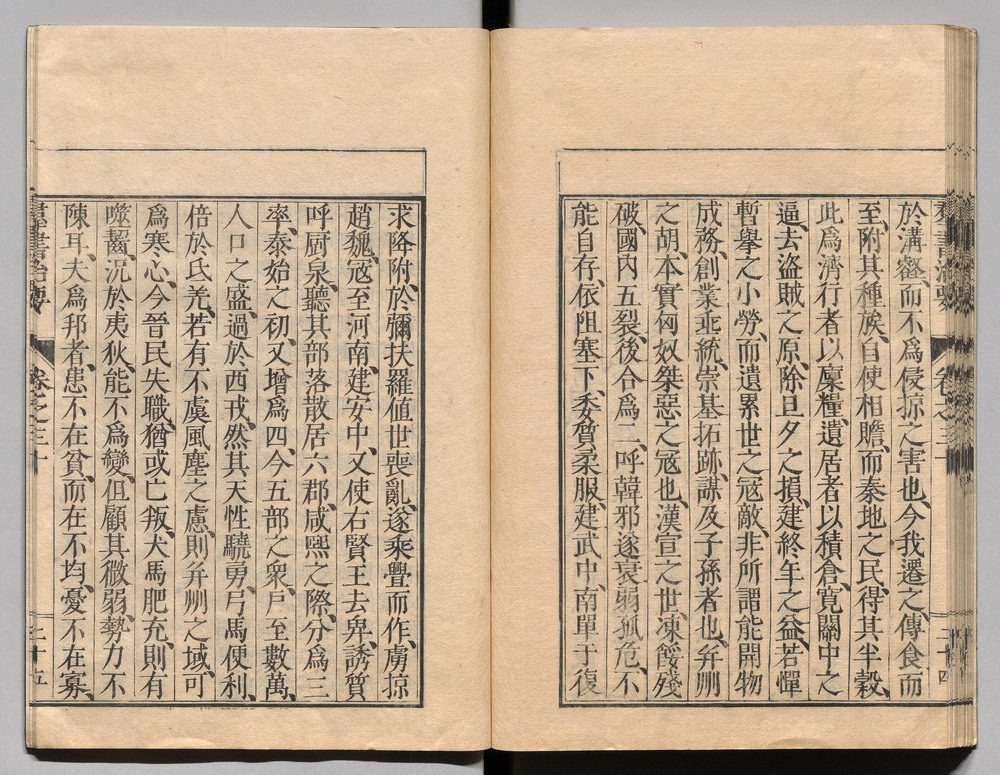 羣書治要 卷之三十 二十四
於溝壑、而不爲侵掠之害也、今我遷之、傳食而
至、附其種族、自使相贍、而秦地之民、得其半穀、
此爲濟行者以廩糧、遺居者以積倉、寬關中之
逼、去盜賊之原、除旦夕之損、建終年之益、若憚
暫擧之小勞、而遺累世之寇敵、非所謂能開物
成務、創業垂統、崇基拓跡、謀及子孫者也、幷州
之胡、本實匈奴桀惡之寇也、漢宣之世、凍餒殘
破、國內五裂、後合爲二、呼韓邪遂衰弱孤危、不
能自存、依阻塞下、委質柔服、建武中、南單于復
求降附、於彌扶羅値世喪亂、遂乘釁而作、虜掠
趙魏、寇至河南、建安中、又使右賢王去卑、誘質
呼厨泉、聽其部落散居六郡、咸熙之際、分爲三
率、泰始之初、又增爲四、今五部之衆、戶至數萬、
人口之盛、過於西戎、然其天性驍勇、弓馬便利、
倍於氐羌、若有不虞風塵之慮、則幷州之域、可
爲寒心、今晉民失職、猶或亡叛、犬馬肥充、則有
噬齧、況於夷狄、能不爲變、但顧其微弱、勢力不
陳耳、夫爲邦者、患不在貧、而在不均、憂不在寡、
羣書治要 卷之三十 二十五